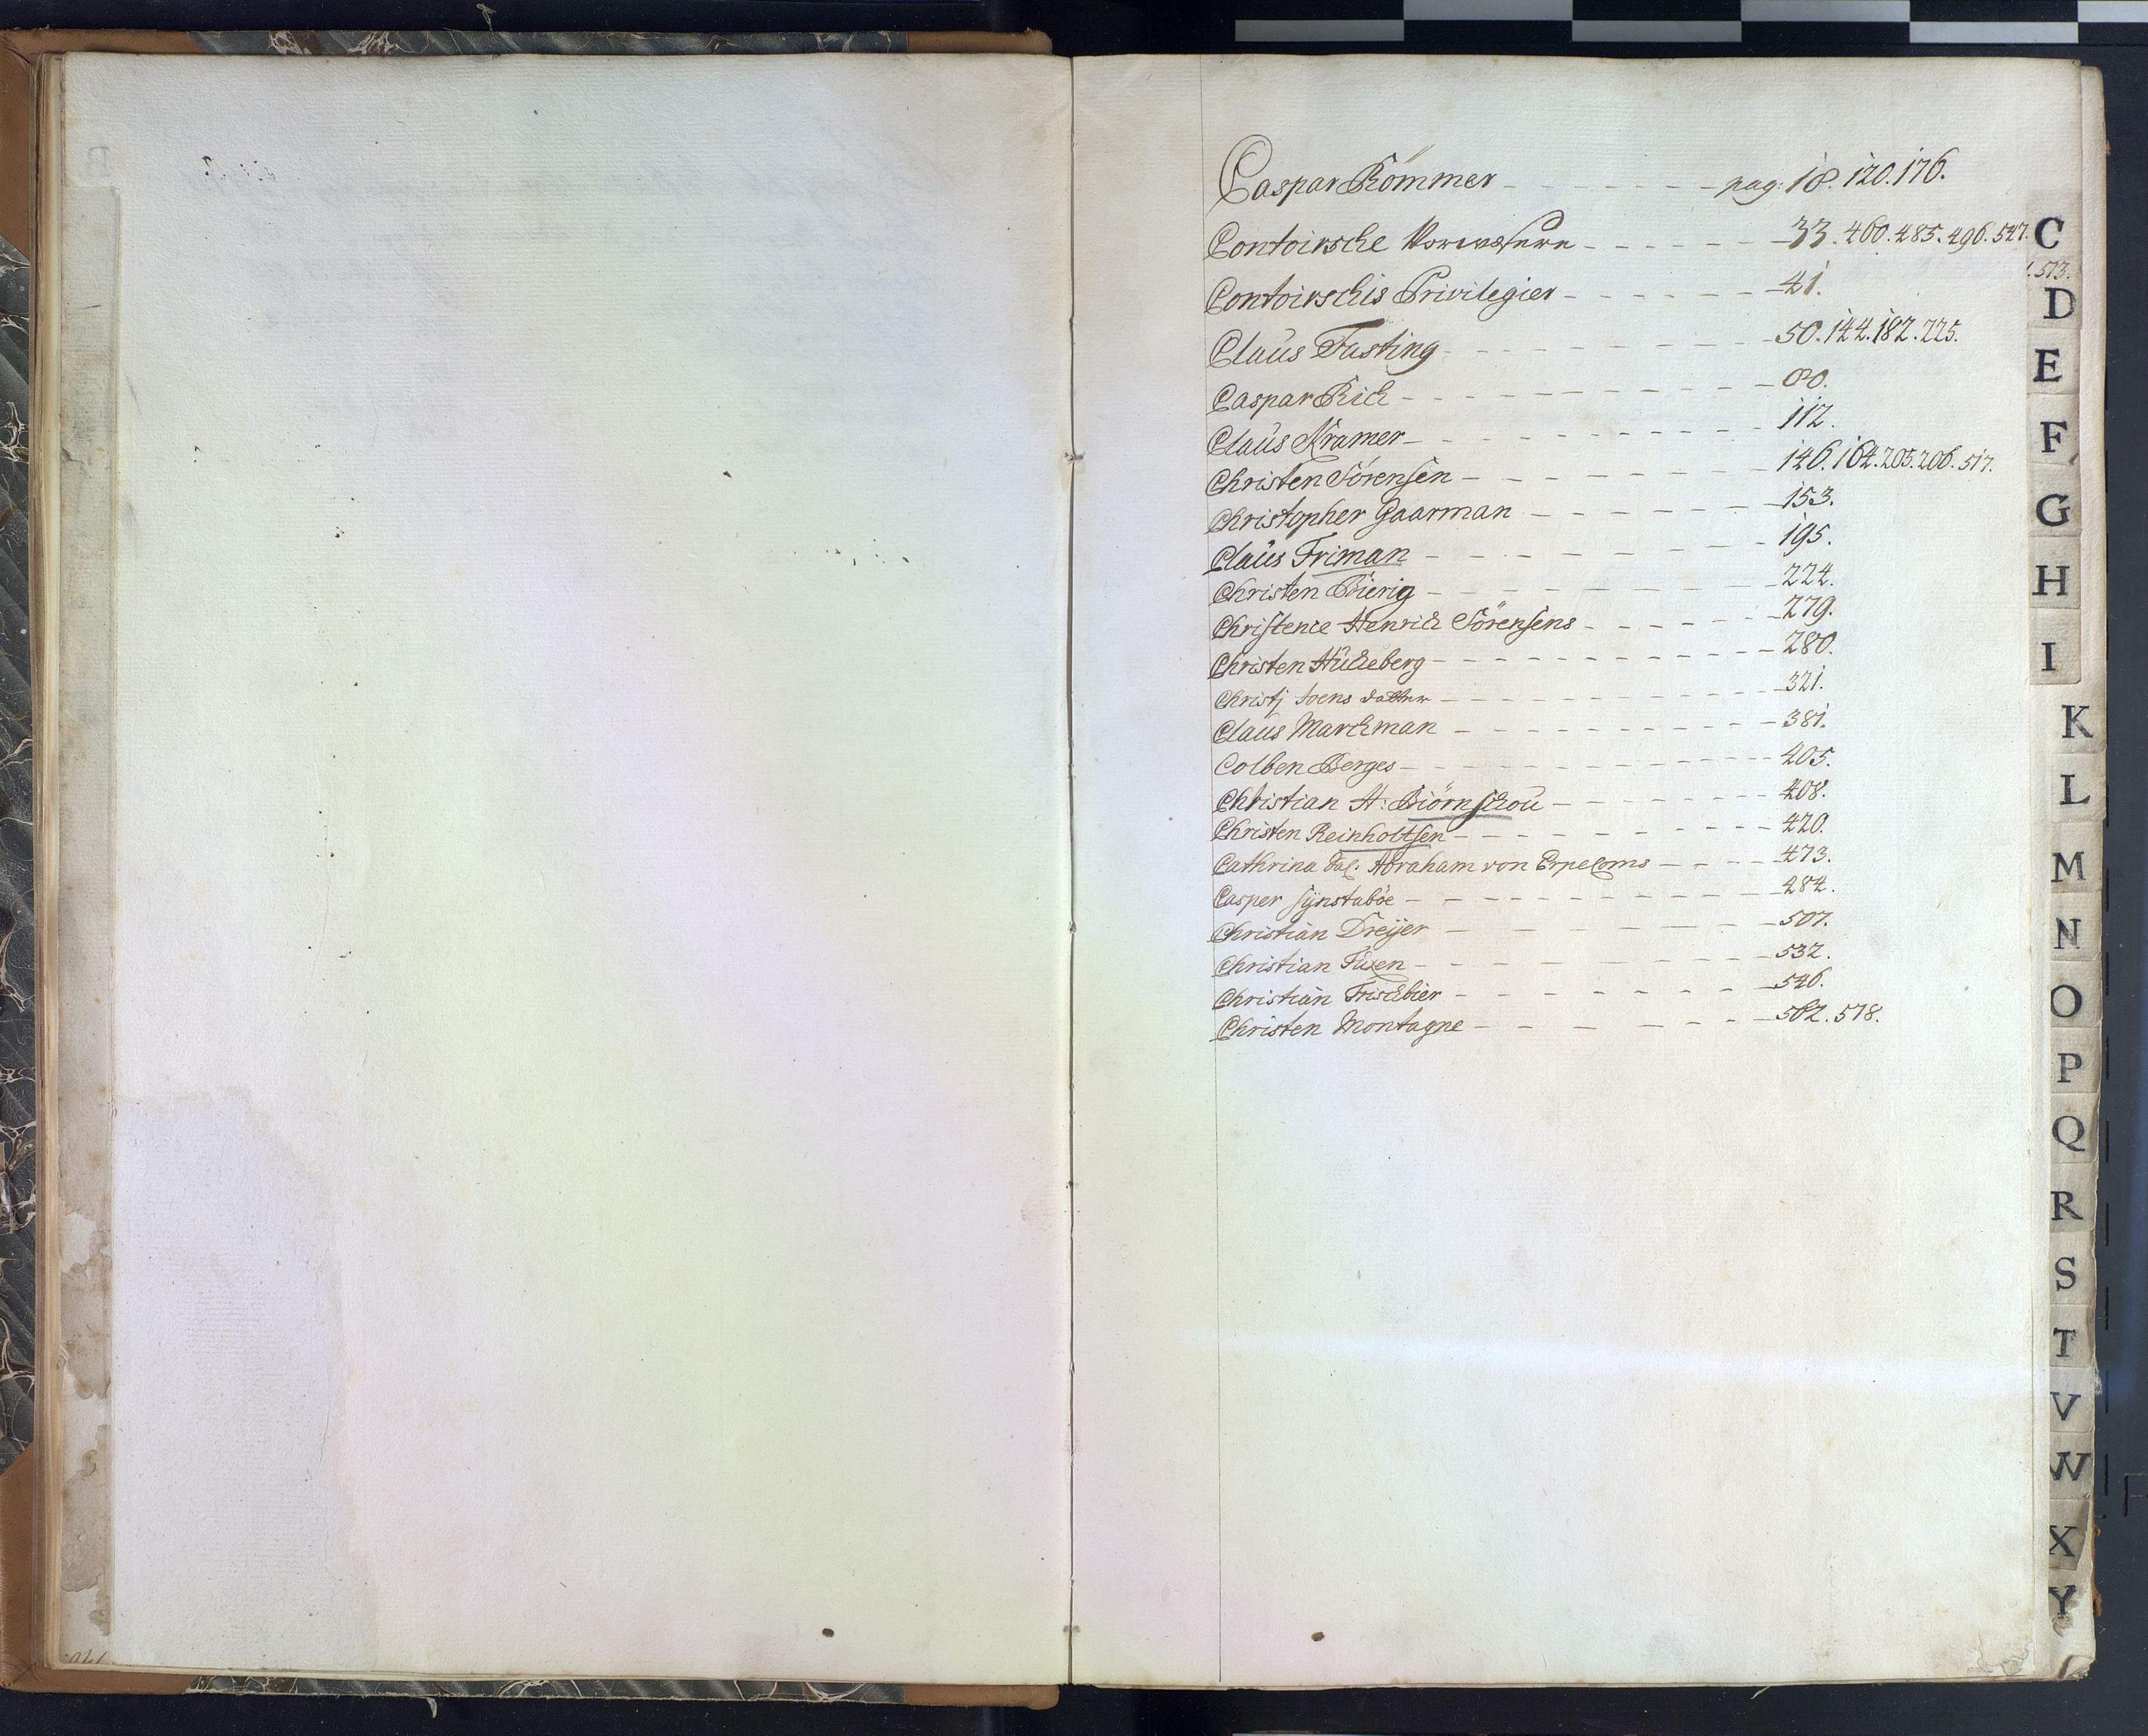 Caspar Römmer - - - - - - - pag: 18. 120. 176.
Contoirsche - - - - - - 33. 460. 485. 496. 547.
573.
Contoirschis Privilegier - - - - - - 41.
Claüs Fasting - - - - - - - - - 50. 144. 182. 225.
Caspar Rich - - - - - - - - - 80.
Claüs Kramer - - - - - - - - - 112.
Christen Sörensen - - - - - - - - 146. 164. 205. 206. 517.
Christopher Gaarman - - - - - - 153.
Claüs Friman - - - - - - - - 195.
Christen Bierig - - - - - - - 224.
Christence Henrich Sörensens - - - - - - 279.
Christen Hückeberg - - - - - - - - - 280.
Christj datter - - - - - - - - 321.
Claüs Marchman - - - - - - - - 381.
Colben Berges - - - - - - - - - 405.
Christian H: Biörnschou - - - - - - 408.
Christen Reinholtsen - - - - - - - - 420.
Cathrina Sal: Abraham von Erpecoms - - - - 473.
Casper Synstaböe - - - - - - - - - 484.
Christian Dreÿer - - - - - - - 507.
Christian Füxen - - - - - - - - 532.
Christian Frischbier - - - - - - - 546.
Christen Montagne - - - - - - - 562. 578.
C
D
E
F
G
H
I
K
L
M
N
O
P
Q
R
S
T
V
W
X
Y